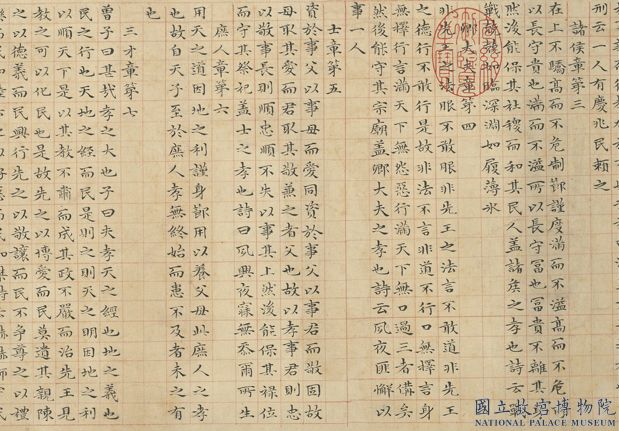 刑云一人有慶兆民賴之
諸侯章第三
在上不驕高而不危制節謹度滿而不溢高而不危
以長守貴也滿而不溢所以長守富也富貴不離其
然後能保其社稷而和其民人蓋諸侯之孝也詩云
戰 臨深淵如履薄冰
卿大夫章第四
非先王 服不敢服非先王之法言不敢道非先王
之德行不敢行是故非法不言非道不行口無擇言身
無擇行言滿天下無口過行滿天下無怨惡三者備矣
然後能守其宗廟蓋卿大夫之孝也詩云夙夜匪懈以
事一人
士章第五
資於事父以事母而愛同資於事父以事君而敬同故
母取其愛而君取其敬兼之者父也故以孝事君則忠
以敬事長則順忠順不失以事其上然後能保其祿位
而守其祭祀蓋士之孝也詩云夙興夜寐無忝爾所生
庶人章第六
用天之道因地之利謹身節用以養父母此庶人之孝
也故自天子至於庶人孝無終始而患不及者未之有
也
三才章第七
曾子曰甚哉孝之大也子曰夫孝天之經也地之義也
民之行也天地之經而民是則之則天之明因地之利
以順天下是以其教不肅而成其政不嚴而治先王見
教之可以化民也是故先之以博愛而民莫遺其親陳
之以德義而民興行先之以敬讓而民不爭導之以禮
國立故宮博物院
NATIONAL PALACE MUSEUM